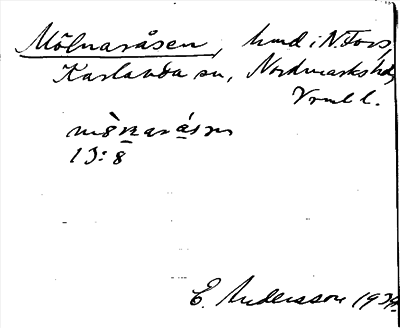 Mölnaråsen, hmd i N. Fors,
Karlanda sn, Nordmarks hd,
Vrml l.
13:8
E. Andersson 1934.